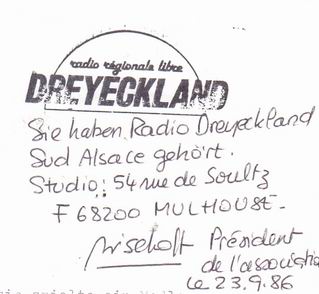 radio régionale libre
DREYECKLAND
Sie haben Radio Dreyeckland
Sud Alsace gehört.
Studio: 54 rue de Soultz
F 68200 MULHOUSE-
Président
de l'associati
Le 23.9.86